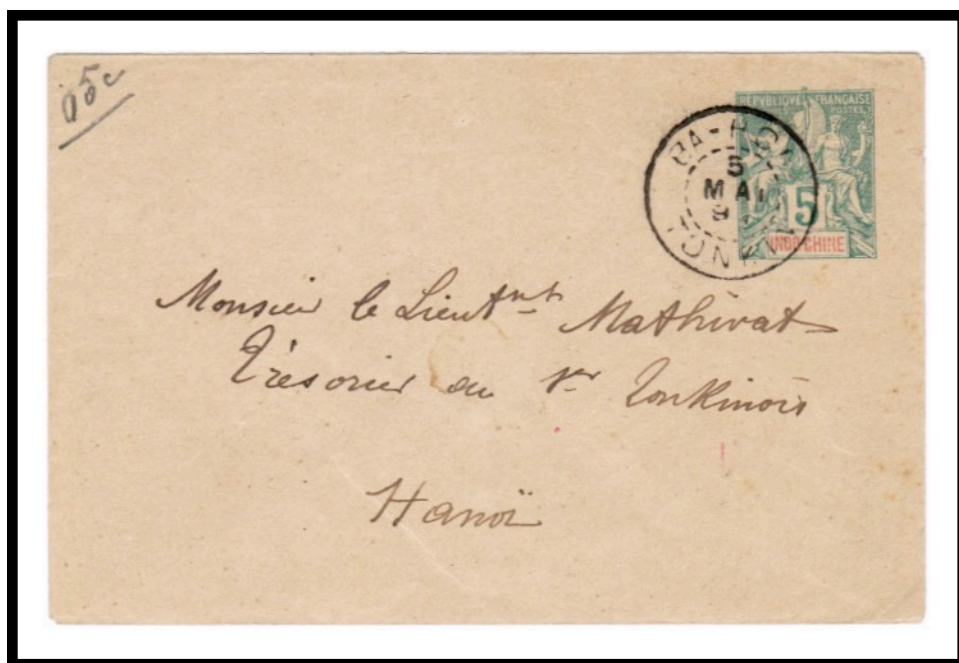 05c
RÉPUBLIQUE FRANÇAISE
POSTES
5
INDO-CHINE
5
MAI
TONKIN
Monsieur le Lieutnt Mathivat
Trésorier au 1er Tonkinois
Hanoï